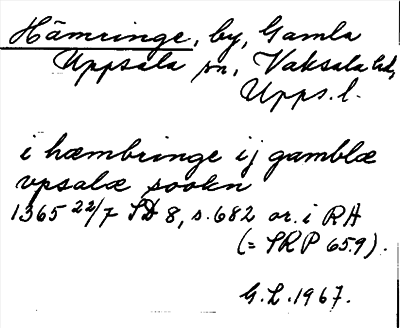 Hämringe, by, Gamla
Uppsala sn, Vaksala hd,
Upps.l.
i hæmbringe ij gamblæ
vpsalæ sookn
1365 22/7 SD 8, s. 682 or. i RA
(= SRP 659).
G.L. 1967.